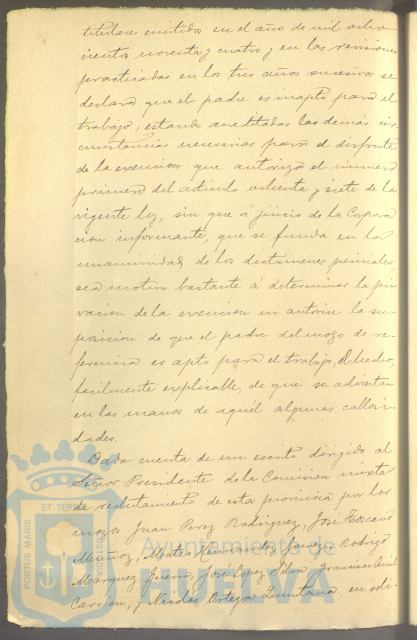 titulares emitidos en el año de mil ocho
cientos noventa y cuatro y en las revisiones
practicadas en los tres años sucesivos se
declara que el padre es inapto para el
trabajo, estando acreditadas las demás cir
cunstancias necesarias para el disfrute
de la exencion que autoriza el número
primero del artículo ochenta y siete de la
vigente ley, sin que á juicio de la Corpora
cion informante, que se funda en la
unanimidad de los dictámenes periciales,
sea motivo bastante á determinar la pri
vacion de la exencion ni autorice la su
posicion de que el padre del mozo de re
ferencia es apto para el trabajo, el hecho,
facilmente explicable, de que se adviertan
en las manos de aquél algunas callosi
dades.
Dada cuenta de un escrito dirigido al
Señor Presidente de la Comision mixta
de reclutamiento de esta provincia por los
mozos Juan Perez Rodriguez, José
Muñoz, Mateo Hernandez Rodrigo
Marquez Guerra, José Lopez Silva, Francisco
Carrion, y Nicolás Ortega Quintana, en
PORTUS MARIS
ET TERRAE
Ayuntamiento de
HUELVA